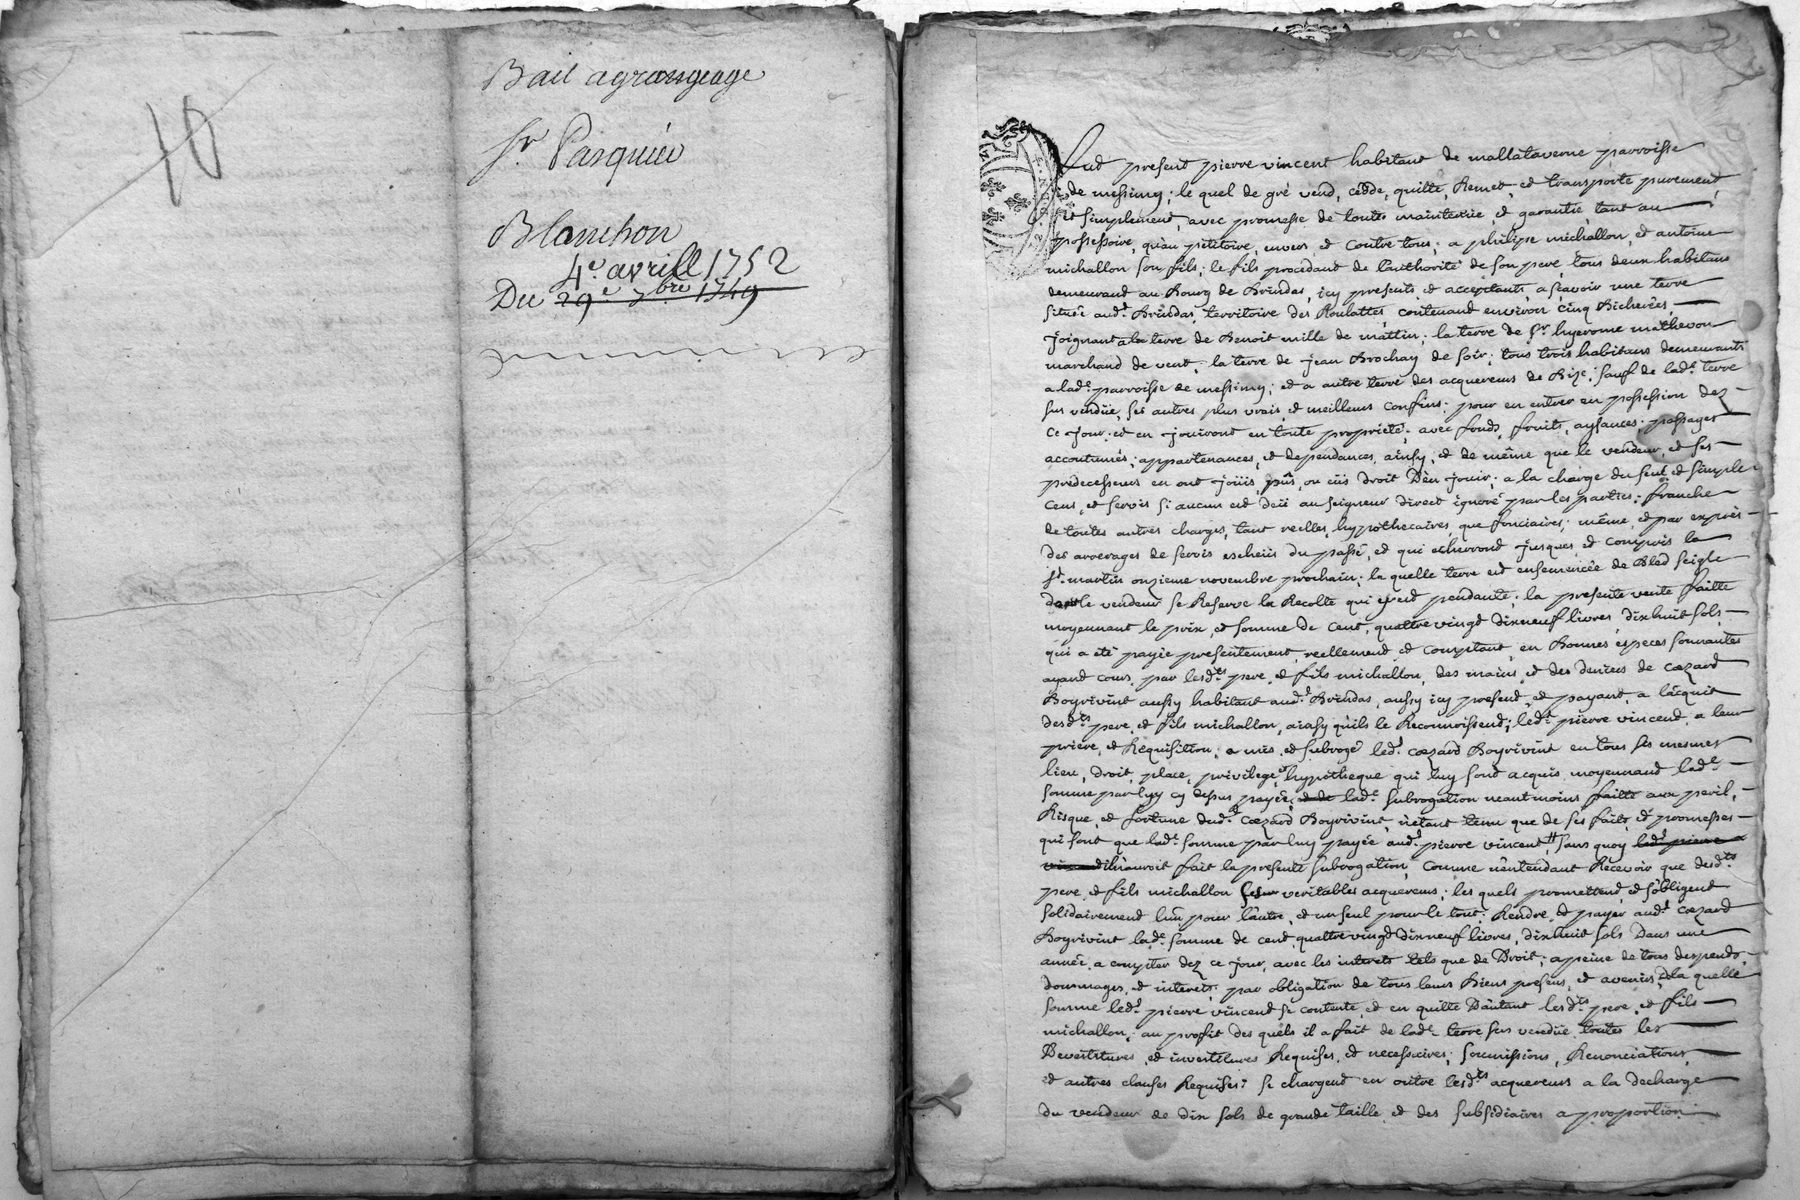 10
Bail agrangeage
Sr Pasquier
Blanchon
4e avrill 1752
Du 29e 7bre 1749
Fut present pierre vincent habitant de mallataverne parroisse
de messimy; le quel de gré vend, cedde, quitte, Remet, et transporte purement,
et simplement, avec promesse de toutte maintenue et garantie, tant au
possessoire, qu'au petitoire, envers et contre tous; a philipe michallon, et antoine
michallon son fils; le fils procedant de l'authorité de son pere, tous deux habitans
demeurand au Bourg de Brindas, icy presents et acceptants, a sçavoir une terre
située aud.t Brindas, territoire des Roulattes contenand environ cinq Bicherées
joignant a la terre de Benoit mille de mattin; la terre de Sr hyerome mathevon
marchand de vent; la terre de jean Brochay de soir; tous trois habitans demeurants
a lad.e parroisse de messimy; et a autre terre des acquereurs de Bize; sauf de lad.e terre
sus vendüe, ses autres plus vrais, et meilleurs confins; pour en entrer en possession dez
ce jour, et en jouiront en toute proprieté; avec fonds, fruits, aysances, passages
accoutumés; appartenances, et dependances, ainsy, et de même que le vendeur, et ses
predecesseurs en ont joüis, pûs, ou eüs droit D'en jouir; a la charge du seul et simple
cens, et servis si aucun est deü au seigneur direct ignoré par les parties; franche
de toutes autres charges, tant reelles, hypothecaires, que fonciaires; même, et par exprès
des arrerages de servis escheüs du passé, et qui escherront jusques, et compris la
st. martin onzieme novembre prochain; la quelle terre est ensemencée de Bled seigle
dont le vendeur se Reserve la Recolte qui y est pendante; la presente vente faitte
moyennant le prix, et somme de cent, quattre vingt dixneuf livres dixhuit sols
qui a été payée presentement, reellement, et comptant, en Bonnes éspeces sonnantes
ayand cours, par lesd.ts pere, et fils michallon, des mains, et des deniers de cœzard
Boyrivint aussy habitant aud.t Brindas, aussy icy present, et payant, a l'acquit
desd.ts pere, et fils michallon, ainsy qu'ils le Reconnoissent; led.t pierre vincend, a leur
priere, et Requisition, a mis, et subrogé led.t cœzard Boyrivint en tous ses mesmes
lieu, droit, place, privilege, et hypotheque qui luy sont acquis, moyennand lad.e
somme par luy cy dessus payée; et de lad.e subrogation neantmoins faitte aux peril,
Risque, et fortune dud.t Cœzard Boyrivint, n'étant tenu que de ses faits, et promesses
qui sont que lad.e somme par luy payée aud.t pierre vincent, # sans quoy led.t pierre
vincend il n'auroit fait la presente subrogation, comme n'entendant Recevoir que desd.ts
pere, et fils michallon ses veritables acquereurs; les quels promettend, et s'obligent
solidairement l'un pour l'autre, et un seul pour le tout, Rendre, et payer aud.t cœzard
Boyrivint lad.e somme de cent quattre vingt dixneuf livres, dixhuit sols Dans une
année, a compter dez ce jour, avec les interets tels que de Droit; a peine de tous despends,
dommages, et interets; par obligation de tous leurs Biens presens, et avenirs, De la quelle
somme led.t pierre vincend se contente, et en quitte D'autant lesd.ts pere, et fils
michallon; au profit des quels il a fait de lad.e terre sus vendüe toutes les
Devestitures, et investitures Requises, et necessaires; soumissions, Renonciations,
et autres clauses Requises; se chargend en outre lesd.ts acquereurs a la decharge
du vendeur de dix sols de grande taille, et des subsidiaires a proportion